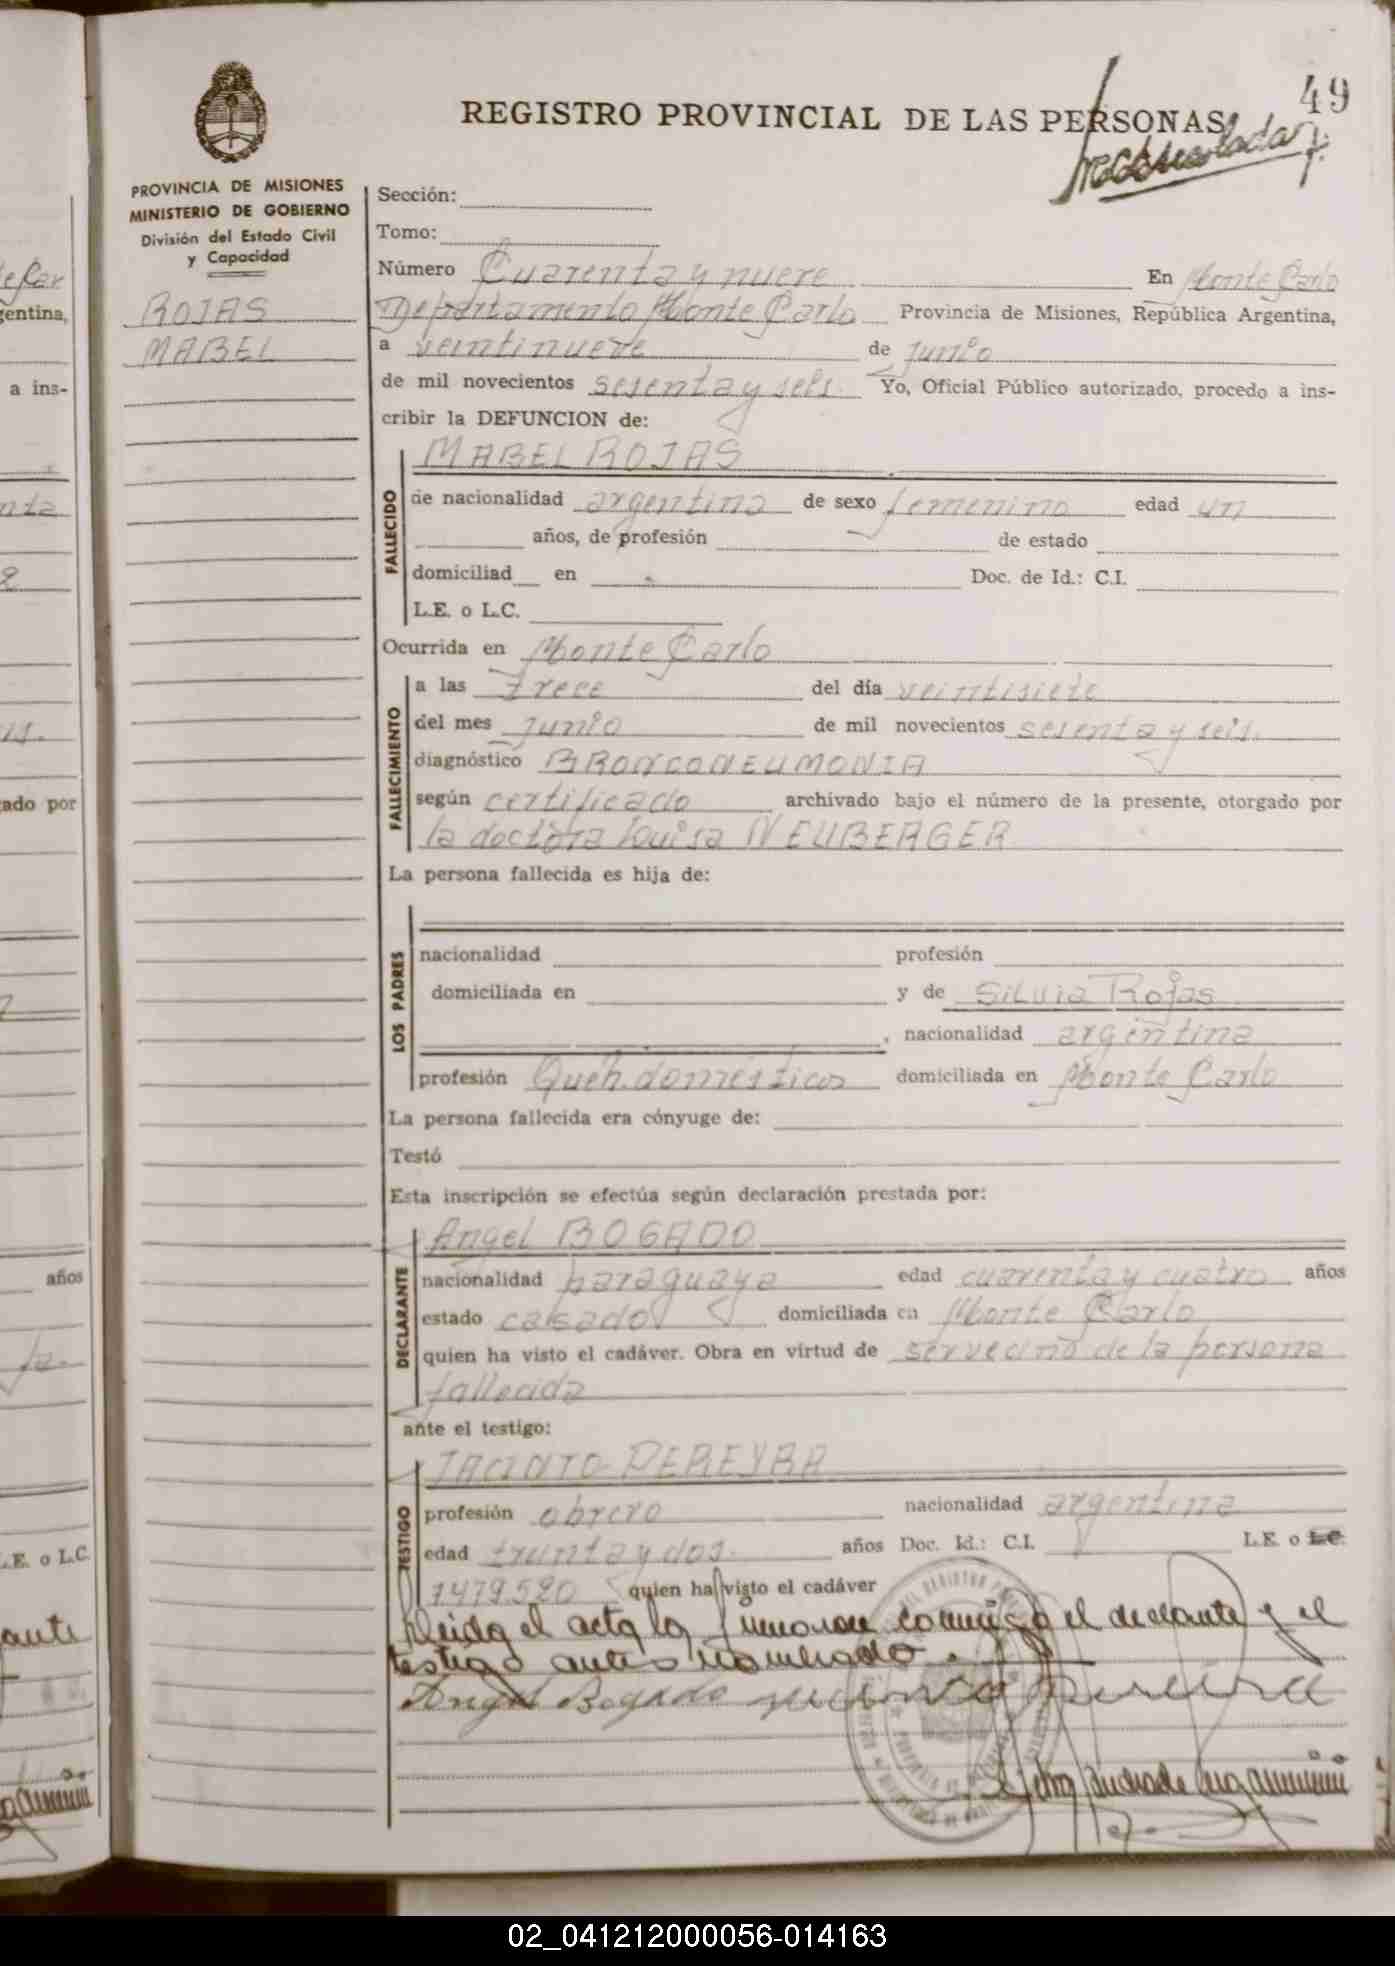 49
REGISTRO PROVINCIAL DE LAS PERSONAS
PROVINCIA DE MISIONES
MINISTERIO DE GOBIERNO
División del Estado Civil
y Capacidad
ROJAS
MABEL
Sección:
Tomo:
Número Cuarenta y nueve En Monte Carlo
Departamento Monte Carlo Provincia de Misiones, República Argentina,
a veintinueve de junio
de mil novecientos sesenta y seis. Yo, Oficial Público autorizado, procedo a ins-
cribir la DEFUNCION de:
MABEL ROJAS
FALLECIDO
de nacionalidad argentina de sexo femenino edad un
años, de profesión de estado
domiciliad en Doc. de Id.: C.I.
L.E. o L.C.
Ocurrida en Monte Carlo
FALLECIMIENTO
a las trece del día veintisiete
del mes junio de mil novecientos sesenta y seis.
diagnóstico BRONCONEUMONIA
según certificado archivado bajo el número de la presente, otorgado por
la doctora Luisa NEUBERGER
La persona fallecida es hija de:
LOS PADRES
nacionalidad profesión
domiciliada en y de Silvia Rojas
, nacionalidad argentina
profesión Queh. domésticos domiciliada en Monte Carlo
La persona fallecida era cónyuge de:
Testó
Esta inscripción se efectúa según declaración prestada por:
Angel BOGADO
DECLARANTE
nacionalidad paraguaya edad cuarenta y cuatro años
estado casado domiciliada en Monte Carlo
quien ha visto el cadáver. Obra en virtud de ser vecino de la persona
fallecida
ante el testigo:
JACINTO PEREYRA
TESTIGO
profesión obrero nacionalidad argentina
edad treinta y dos. años Doc. Id.: C.I. L.E. o L.C.
7479.520 quien ha visto el cadáver
Leida el acta la firmaron conmigo el declarante y el
testigo antes nombrado.
Angel Bogado Jacinto Pereira
02_041212000056-014163